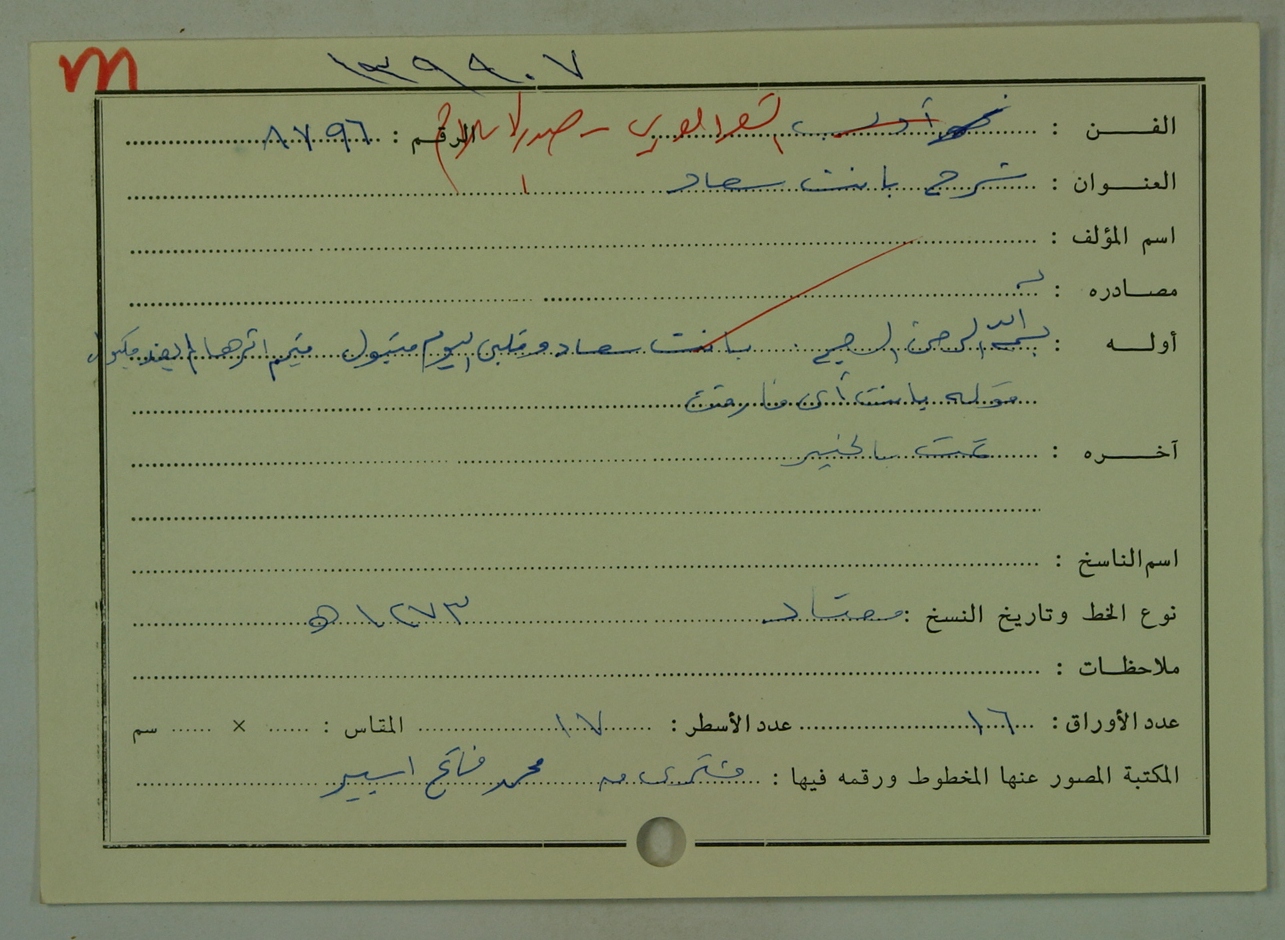 m ١٣٩٩٠٧
الفــن : نحو أدب الشعر العربي - صدر الاسلام الرقم : ٨٧٩٦
العنـــوان : شرح بانت سعاد
اسم المؤلف :
مصـــادره :
أولـــه : بسم الله الرحمن الرحيم . بانت سعاد وقلبي اليوم متبول متيم اثرها لم يفد مكبول
قوله بانت أي فارقت
آخـــره : تمت بالخير
اسم الناسخ :
نوع الخط وتاريخ النسخ : معتاد ١٢٧٣ ه
ملاحظـات :
عدد الأوراق : ١٦ عدد الأسطر : ١٧ المقاس : × سم
المكتبة المصور عنها المخطوط ورقمه فيها : مشترى من محمد فاتح